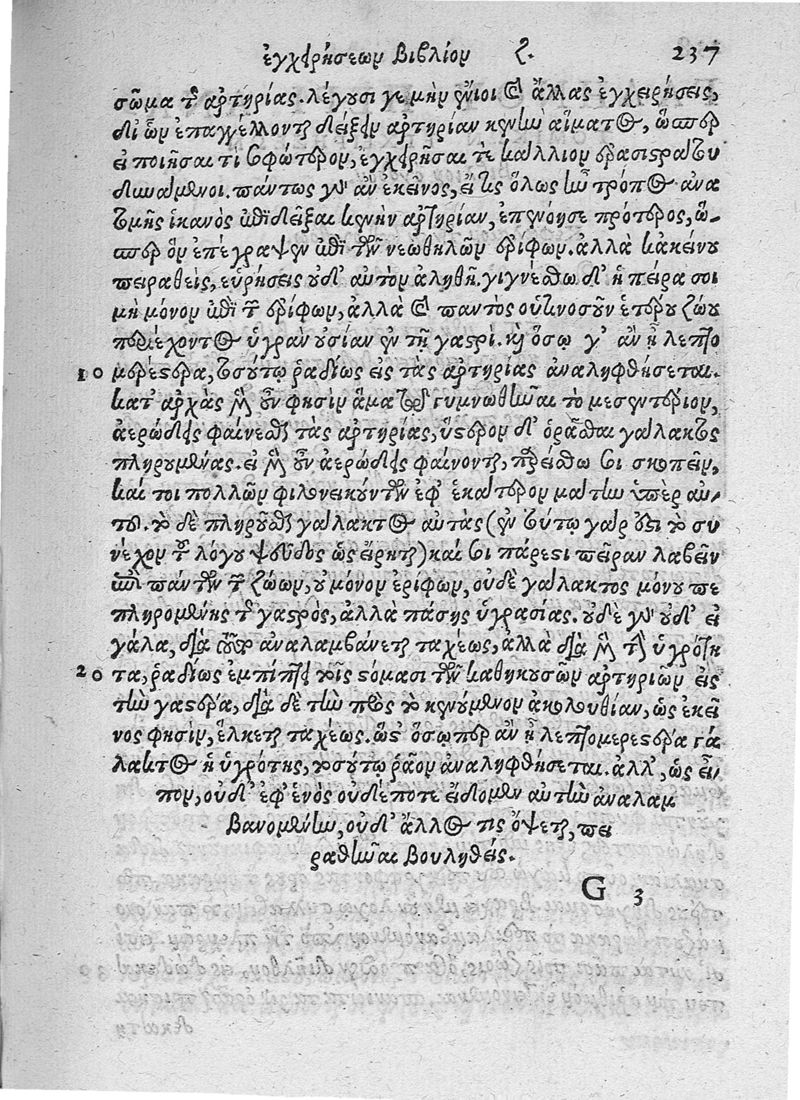 ἐγχειρήσεων Βιβλίον ζ. 237
σῶμα τῆς ἀρτηρίας. λέγουσί γε μὴν ἔνιοι καὶ ἄλλας ἐγχειρήσεις,
δι' ὧν ἐπαγγέλλονται δείξειν ἀρτηρίαν κενὴν αἵματος, ὥσπερ
εἰ ποιῆσαί τι σοφώτερον, ἐγχειρῆσαί τε κάλλιον ἐρασιστράτου
δυνάμενοι. πάντως γὰρ ἂν ἐκεῖνος, εἴ τις ὅλως ἦν τρόπος ἀνα
τομῆς ἱκανὸς ἐπιδεῖξαι κενὴν ἀρτηρίαν, ἐπενόησε πρότερος, ὥ-
σπερ ὃν ἐπέγραψεν ἐπὶ τῶν νεωθηλῶν ἐρίφων. ἀλλὰ κἀκείνου
πειραθείς, εὑρήσεις οὐδ' αὐτὸν ἀληθῆ. γιγνέσθω δ' ἡ πεῖρά σοι
μὴ μόνον ἐπὶ τῶν ἐρίφων, ἀλλὰ καὶ παντὸς οὑτινοσοῦν ἑτέρου ζώου
περιέχοντος ὑγρὰν οὐσίαν ἐν τῇ γαστρί. καὶ ὅσῳ γ' ἂν ᾖ λεπτο
10 μερέστερα, τοσούτῳ ῥᾳδίως εἰς τὰς ἀρτηρίας ἀναληφθήσεται.
κατ' ἀρχὰς μὲν οὖν φησὶν ἅμα τῷ γυμνωθῆναι τὸ μεσεντέριον,
ἀερώδεις φαίνεσθαι τὰς ἀρτηρίας, ὕστερον δ' ὁρᾶσθαι γάλακτος
πληρουμένας. εἰ μὲν οὖν ἀερώδεις φαίνονται, παρείσθω σοι σκοπεῖν,
καί τοι πολλῶν φιλονεικούντων ἐφ' ἑκάτερον μάτην ὑπὲρ αὐ-
τοῦ. τὸ δὲ πληροῦσθαι γάλακτος αὐτὰς (ἐν τούτῳ γάρ ἐστι τὸ συ
νέχον τοῦ λόγου ψεῦδος ὡς εἴρηται) καί σοι πάρεστι πεῖραν λαβεῖν
ἐπὶ πάντων τῶν ζώων, οὐ μόνον ἐρίφων, οὐδὲ γάλακτος μόνου πε
πληρομένης τῆς γαστρὸς, ἀλλὰ πάσης ὑγρασίας. οὐδὲ γὰρ οὐδ' εἰ
γάλα, διὰ τοῦτο ἀναλαμβάνεται ταχέως, ἀλλὰ διὰ μὲν τὴν ὑγρότη
20 τα, ῥᾳδίως ἐμπίπτει τοῖς στόμασι τῶν καθηκουσῶν ἀρτηριῶν εἰς
τὴν γαστέρα, διὰ δὲ τὴν πρὸς τὸ κενούμενον ἀκολουθίαν, ὡς ἐκεῖ
νος φησὶν, ἕλκεται ταχέως. ὥσθ' ὅσωπερ ἂν ᾖ λεπτομερεστέρα γά
λακτος ἡ ὑγρότης, τοσούτῳ ῥᾷον ἀναληφθήσεται. ἀλλ', ὡς εἶ-
πον, οὐδ' ἐφ' ἑνὸς οὐδέποτε εἴδομεν αὐτὴν ἀναλαμ
βανομένην, οὐδ' ἄλλος τις ὄψεται, πει
ραθῆναι βουληθείς.
G 3